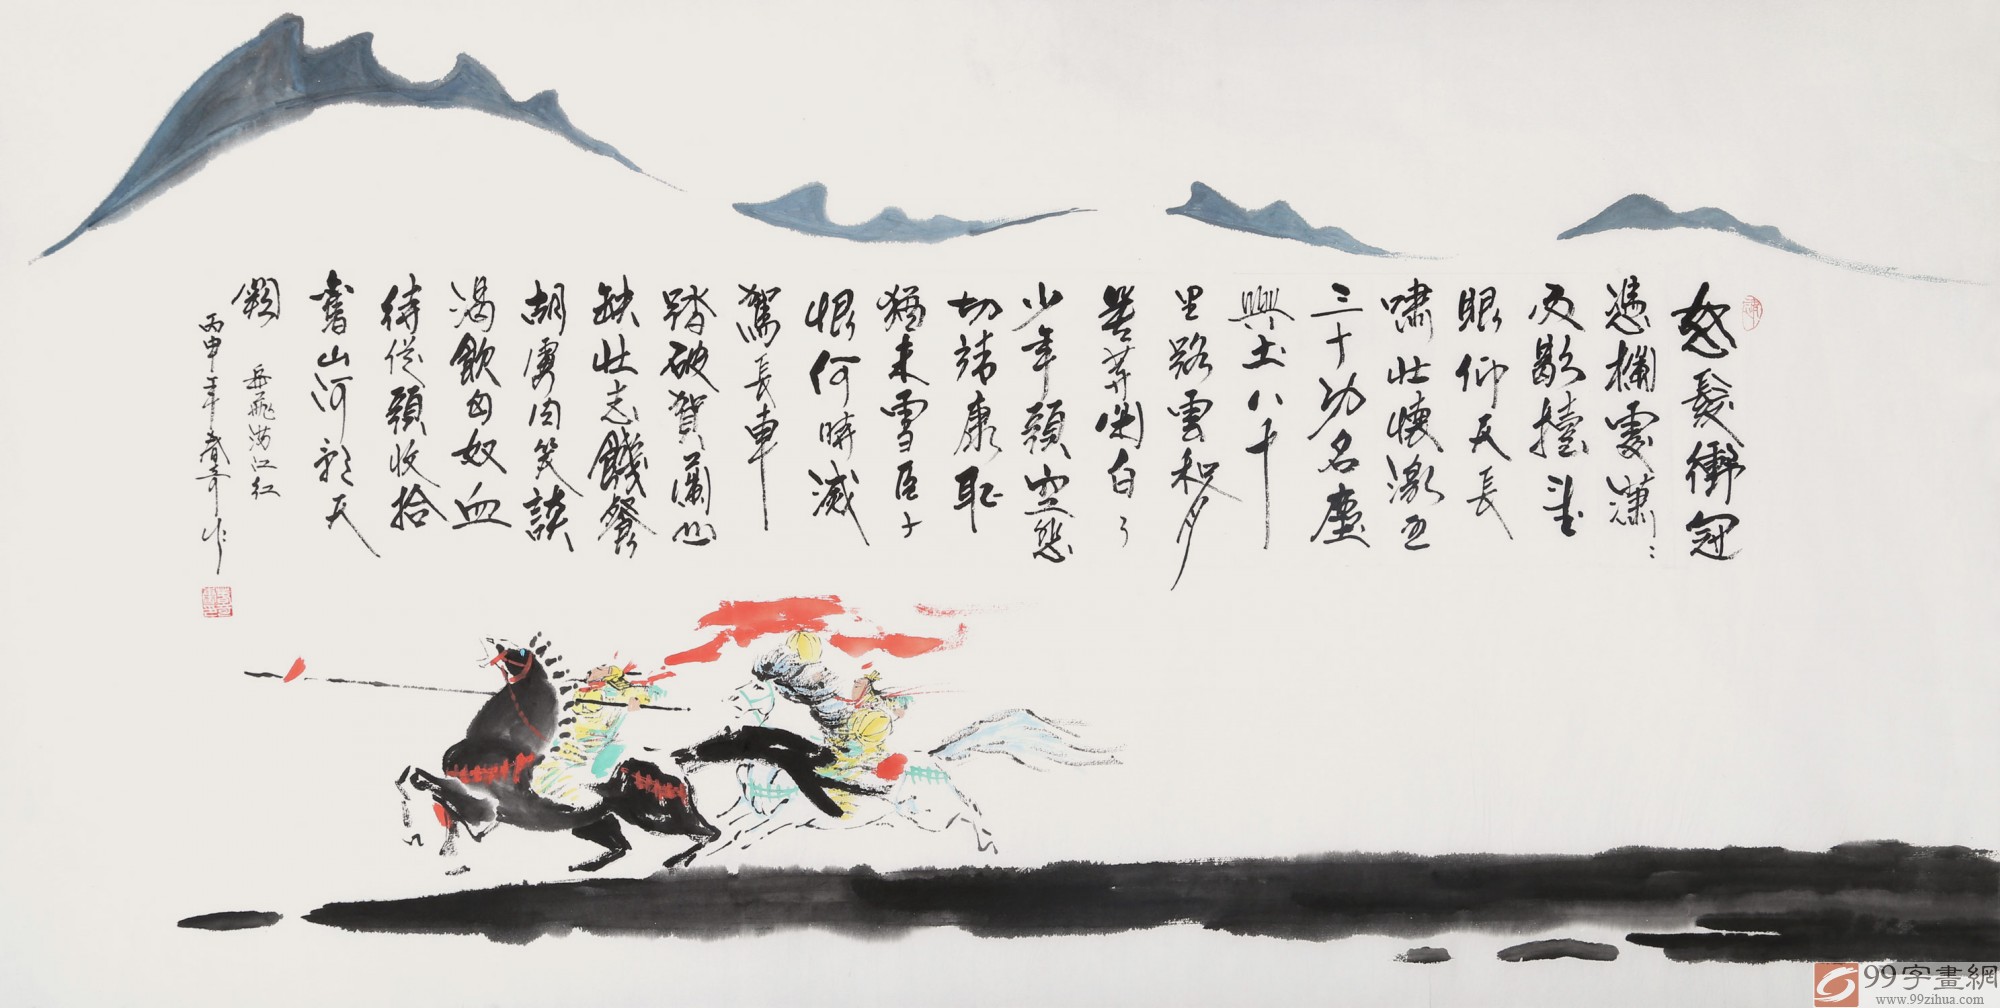 怒髮衝冠
憑欄處瀟〻
雨歇擡望
眼仰天長
嘯壯懷激烈
三十功名塵
與土八千
里路雲和月
莫等閑白了
少年頭空悲
切靖康恥
猶未雪臣子
恨何時滅
駕長車
踏破賀蘭山
缺壯志饑餐
胡虜肉笑談
渴飲匈奴血
待從頭收拾
舊山河朝天
闕
岳飛滿江紅
丙申年
99字畫網
www.99zihua.com